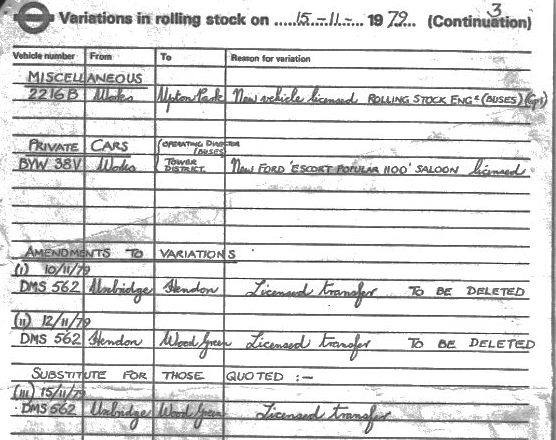 Variations in rolling stock on 15-11- 1979 (Continuation) 3
Vehicle number From To Reason for variation
MISCELLANEOUS
2216B Works Upton Park New vehicle licensed ROLLING STOCK ENGR (BUSES) (Gp1)
PRIVATE CARS (OPERATING DIRECTOR (BUSES)
BYW 38V Works TOWER DISTRICT. New FORD 'ESCORT POPULAR 1100' SALOON licensed
AMENDMENTS TO VARIATIONS
(I) 10/11/79
DMS 562 Uxbridge Hendon Licensed transfer TO BE DELETED
(II) 12/11/79
DMS 562 Hendon Wood Green Licensed transfer TO BE DELETED
SUBSTITUTE FOR THOSE QUOTED :-
(III) 15/11/79
DMS 562 Uxbridge Wood Green Licensed transfer